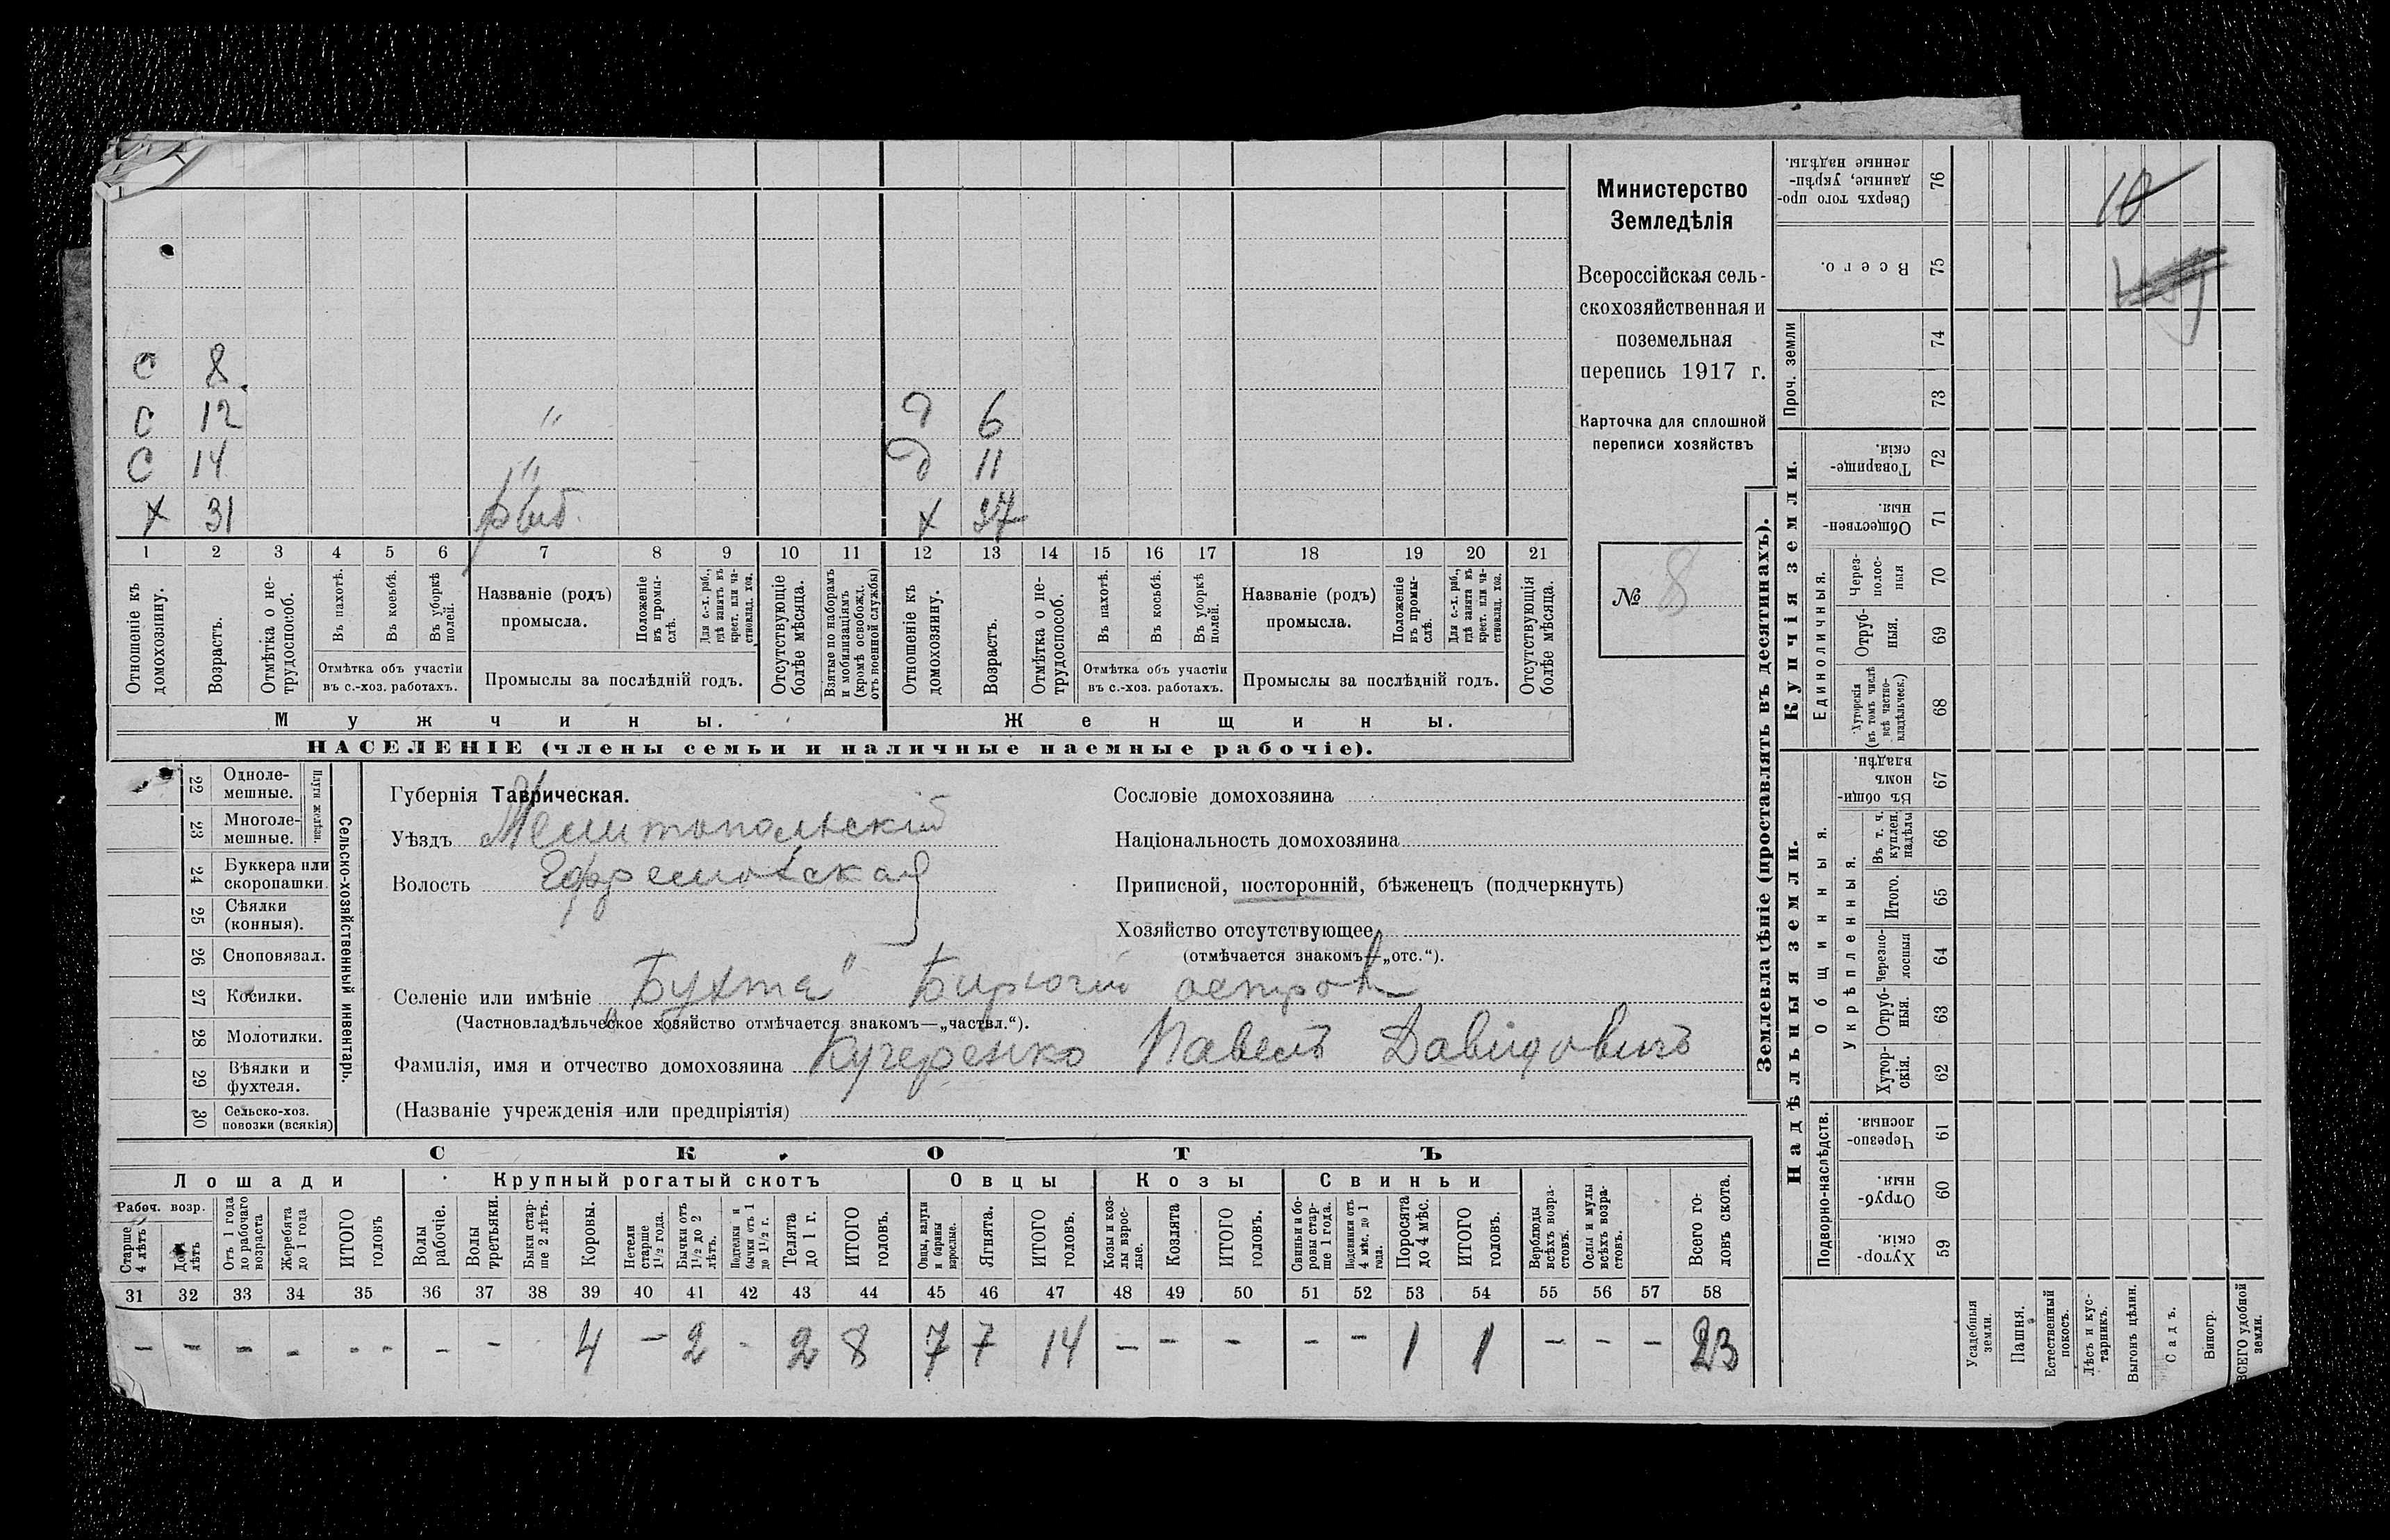 С 8
С 12 " д 6
С 14 " д 11
х 31 рыб. х 37
1 2 3 4 5 6 7 8 9 10 11 12 13 14 15 16 17 18 19 20 21
Отношеніе къ домохозяину.
Возрастъ.
Отмѣтка о не-трудоспособ.
Въ пахотѣ.
Въ косьбѣ.
Въ уборкѣ полей.
Отмѣтка объ участіи
въ с.-хоз. работахъ.
Названіе (родъ)
промысла.
Положеніе въ промы-слѣ.
Для с.-х. раб., гдѣ занятъ въ крест. или ча-стновлад. хоз.
Промыслы за послѣдній годъ.
Отсутствующіе болѣе мѣсяца.
Взятые по наборамъ и мобилизаціямъ (кромѣ освобожд. отъ военной службы)
Отношеніе къ домохозяину.
Возрастъ.
Отмѣтка о не-трудоспособ.
Въ пахотѣ.
Въ косьбѣ.
Въ уборкѣ полей.
Отмѣтка объ участіи
въ с.-хоз. работахъ.
Названіе (родъ)
промысла.
Положеніе въ промы-слѣ.
Для с.-х. раб., гдѣ занята въ крест. или ча-стновлад. хоз.
Промыслы за послѣдній годъ.
Отсутствующія болѣе мѣсяца.
Мужчины.
Женщины.
НАСЕЛЕНІЕ (члены семьи и наличные наемные рабочіе).
Министерство
Земледѣлія
Всероссійская сель-
скохозяйственная и
поземельная
перепись 1917 г.
Карточка для сплошной
переписи хозяйствъ
№ 8
Сельско-хозяйственный инвентарь.
Плуги желѣзн.
22 Одноле-
мешные.
23 Многоле-
мешные.
24 Буккера или
скоропашки.
25 Сѣялки
(конныя).
26 Сноповязал.
27 Косилки.
28 Молотилки.
29 Вѣялки и
фухтеля.
30 Сельско-хоз.
повозки (всякія)
Губернія Таврическая.
Уѣздъ Мелитопольскій
Волость Ефремовская
Селеніе или имѣніе „Бухта" Бирючій островъ
(Частновладѣльческое хозяйство отмѣчается знакомъ—„частвл.“).
Фамилія, имя и отчество домохозяина Кучеренко Павелъ Давидовичъ
(Названіе учрежденія или предпріятія)
Сословіе домохозяина
Національность домохозяина
Приписной, посторонній, бѣженецъ (подчеркнуть)
Хозяйство отсутствующее
(отмѣчается знакомъ—„отс.“).
СКОТЪ
Лошади
Крупный рогатый скотъ
Овцы
Козы
Свиньи
Рабоч. возр.
Старше 4 лѣтъ
До 4 лѣтъ
Отъ 1 года до рабочаго возраста
Жеребята до 1 года
ИТОГО головъ
Волы рабочіе.
Волы третьяки.
Быки стар-ше 2 лѣтъ.
Коровы.
Нетели старше 1½ года.
Бычки отъ 1½ до 2 лѣтъ.
Подтелки и бычки отъ 1 до 1½ г.
Телята до 1 г.
ИТОГО головъ.
Овцы, валухи и бараны взрослые.
Ягнята.
ИТОГО головъ.
Козы и коз-лы взрос-лые.
Козлята
ИТОГО головъ.
Свиньи и бо-ровы стар-ше 1 года.
Подсвинки отъ 4 мѣс. до 1 года.
Поросята до 4 мѣс.
ИТОГО головъ.
Верблюды всѣхъ возра-стовъ.
Ослы и мулы всѣхъ возра-стовъ.
Всего го-ловъ скота.
31 32 33 34 35 36 37 38 39 40 41 42 43 44 45 46 47 48 49 50 51 52 53 54 55 56 57 58
– – – – - - – – - 4 – 2 - 2 8 7 7 14 – – – – – 1 1 – – – 23
Землевладѣніе (проставлять въ десятинахъ).
Надѣльныя земли.
Купчія земли.
Проч. земли
Сверхъ того про-данные, укрѣп-ленные надѣлы. 76 10
Всего. 75
74
73
Товарище-скія 72
Обществен-ныя. 71
Единоличныя.
Через-полос-ныя 70
Отруб-ныя. 69
Хуторскія (въ томъ числѣ всѣ частно-владѣльческ.) 68
Общинныя.
Въ общи-номъ владѣн. 67
Укрѣпленныя.
Въ т. ч. куплен. надѣлы 66
Итого. 65
Черезпо-лосныя 64
Отруб-ныя. 63
Хутор-скія. 62
Подворно-наслѣдств.
Черезпо-лосныя. 61
Отруб-ныя. 60
Хутор-скія. 59
Усадебныя земли.
Пашня.
Естественный покосъ.
Лѣсъ и кус-тарникъ.
Выгонъ цѣлин.
Садъ.
Виногр.
ВСЕГО удобной земли.